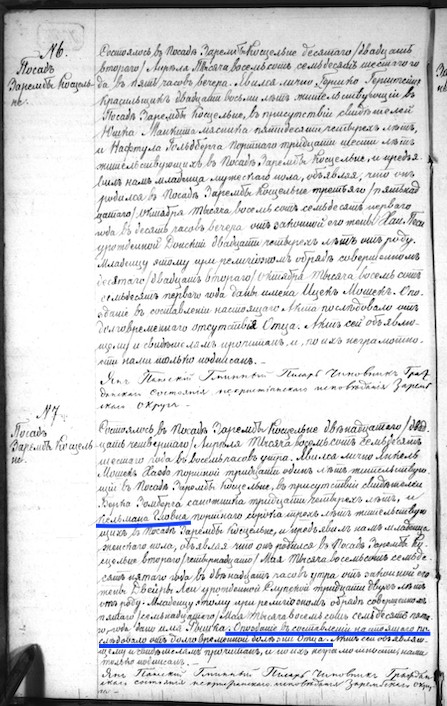 N 6.
Посадъ
Зарембы Косцель
не.
Состоялось въ Посадѣ Зарембы Косцельне десятаго /двадцать
втораго/ Апрѣля Тысяча восемьсотъ семьдесятъ шестаго го
да въ пять часовъ вечера. Явился лично Гершко Герштейнъ
Красильщикъ двадцати восьми лѣтъ жительствующій въ
Посадѣ Зарембы Косцельне, въ присутствіи свидѣтелей
Юшка мясника пятидесяти четырехъ лѣтъ,
и Нафтула Гольдберга Портнаго тридцати шести лѣтъ
жительствующихъ въ Посадѣ Зарембы Косцельне, и предъя
вилъ намъ младенца мужескаго пола, объявляя, что онъ
родился въ Посадѣ Зарембы Косцельне третьяго /пятнад
цатаго/ Октября Тысяча восемьсотъ семьдесятъ перваго
года въ десять часовъ вечера отъ законной его жены Хаи Песи
урожденной двадцати четырехъ лѣтъ отъ роду.
Младенцу этому при религіозномъ обрядѣ совершенномъ
десятаго /двадцать втораго/ Октября Тысяча восемьсотъ
семьдесятъ перваго года даны имена Ицекъ Мошекъ. Опо-
зданіе въ составленіи настоящаго Акта послѣдовало отъ
долговременнаго отсутствія Отца. Актъ сей объявляю-
щему и свидѣтелямъ прочитанъ, и по ихъ неграмотно-
сти нами только подписанъ. –
Янъ Гминный Писарь Чиновникъ Граж
данскаго Состоянія нехристіанскаго исповѣданія Зарем
скаго Округа. –
N 7
Посадъ
Зарембы Косцель
не.
Состоялось въ Посадѣ Зарембы Косцельне двѣнадцатаго /двад
цать четвертаго/ Апрѣля Тысяча восемьсотъ семьдесятъ
шестаго года въ восемь часовъ утра. Явился лично
Мошекъ портной тридцати одинъ лѣтъ жительствую
щій въ Посадѣ Зарембы Косцельне, въ присутствіи свидѣтелей
Берка Зомберга тридцати четырехъ лѣтъ, и
Кельмана портнаго сорока трехъ лѣтъ жительствую
щихъ въ Посадѣ Зарембы Косцельне, и предъявилъ намъ младенца
женскаго пола, объявляя что онъ родился въ Посадѣ Зарембы Ко
сцельне втораго /четырнадцатаго/ Мая Тысяча восемьсотъ семьде
сятъ пятаго года, въ двѣнадцать часовъ утра отъ законной его
жены Двейры Леи урожденной Слупской тридцати двухъ лѣтъ
отъ роду. Младенцу этому при религіозномъ обрядѣ совершенномъ
пятаго /семнадцатаго/ Мая Тысяча восемьсотъ семьдесятъ пята
го года дано имя Рывка. Опозданіе въ составленіи настоящаго по
слѣдовало отъ долговременной болѣзни Отца. Актъ сей объявляю
щему и свидѣтелямъ прочитанъ, и по ихъ неграмотности нами
только подписанъ. –
Янъ Гминный Писарь Чиновникъ Граждан
скаго состоянія нехристіанскаго исповѣданія Зарембскаго Окру
га. –